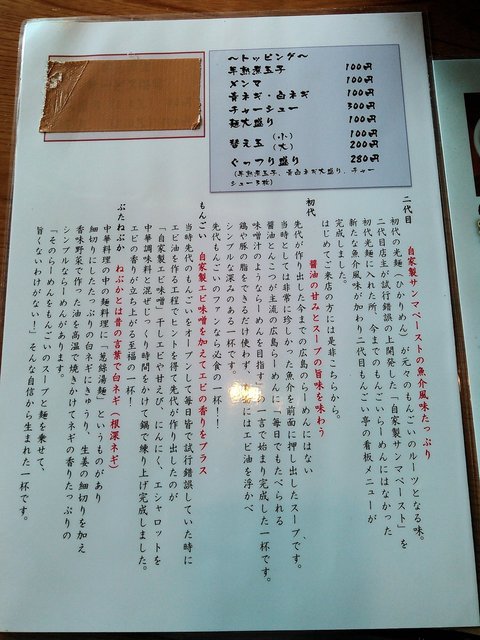 ～トッピング～
半熟煮玉子 100円
メンマ 100円
青ネギ・白ネギ 100円
チャーシュー 300円
麺大盛り 100円
替え玉 （小） 100円
（大） 200円
ぐっつり盛り 280円
（半熟煮玉子、青白ネギ大盛り、チャー
シュー3枚）
二代目 自家製サンマペーストの魚介風味たっぷり
初代の光麺（ひかりめん）が元々のもんごいのルーツとなる味。
二代目店主が試行錯誤の上開発した「自家製サンマペースト」を
初代光麺に入れた所、今までのもんごいらーめんにはなかった
新たな魚介風味が加わり二代目もんごい亭の看板メニューが
完成しました。
はじめてご来店の方には是非こちらから。
初代 醤油の甘みとスープの旨味を味わう
先代が作り出した今までの広島らーめんにはない
当時としては非常に珍しかった魚介を前面に押し出したスープです。
醤油とんこつが主流の広島らーめんに、毎日でもたべられる
味噌汁のようならーめんを目指す、の一言で始まり完成した一杯です。
鶏や豚の脂をできるだけ使わず、にはエビ油を浮かべ
シンプルな深みのある一杯です。
先代もんごいのファンなら必食の一杯！
もんごい 自家製エビ味噌を加えてエビの香りをプラス
当時先代のもんごいをオープンして毎日皆で試行錯誤していた時に
エビ油を作る工程でヒントを得て先代が作り出したのが
「自家製エビ味噌」干しエビや甘えび、にんにく、エシャロットを
中華調味料と混ぜじっくり時間をかけて鍋で練り上げ完成しました。
エビの香りが立ち上がる至福の一杯！
ぶたねぶか ねぶかとは昔の言葉で白ネギ（根深ネギ）
中華料理の中の麺料理に「葱絲湯麺」というものがあり
細切りにしたたっぷりの白ネギにきゅうり、生姜の細切りを加え
香味野菜で作った油を高温で焼きかけてネギの香りたっぷりの
シンプルならーめんがあります。
「そのらーめんをもんごいのスープと麺を乗せて、
旨くないわけがない！」そんな自信から生まれた一杯です。